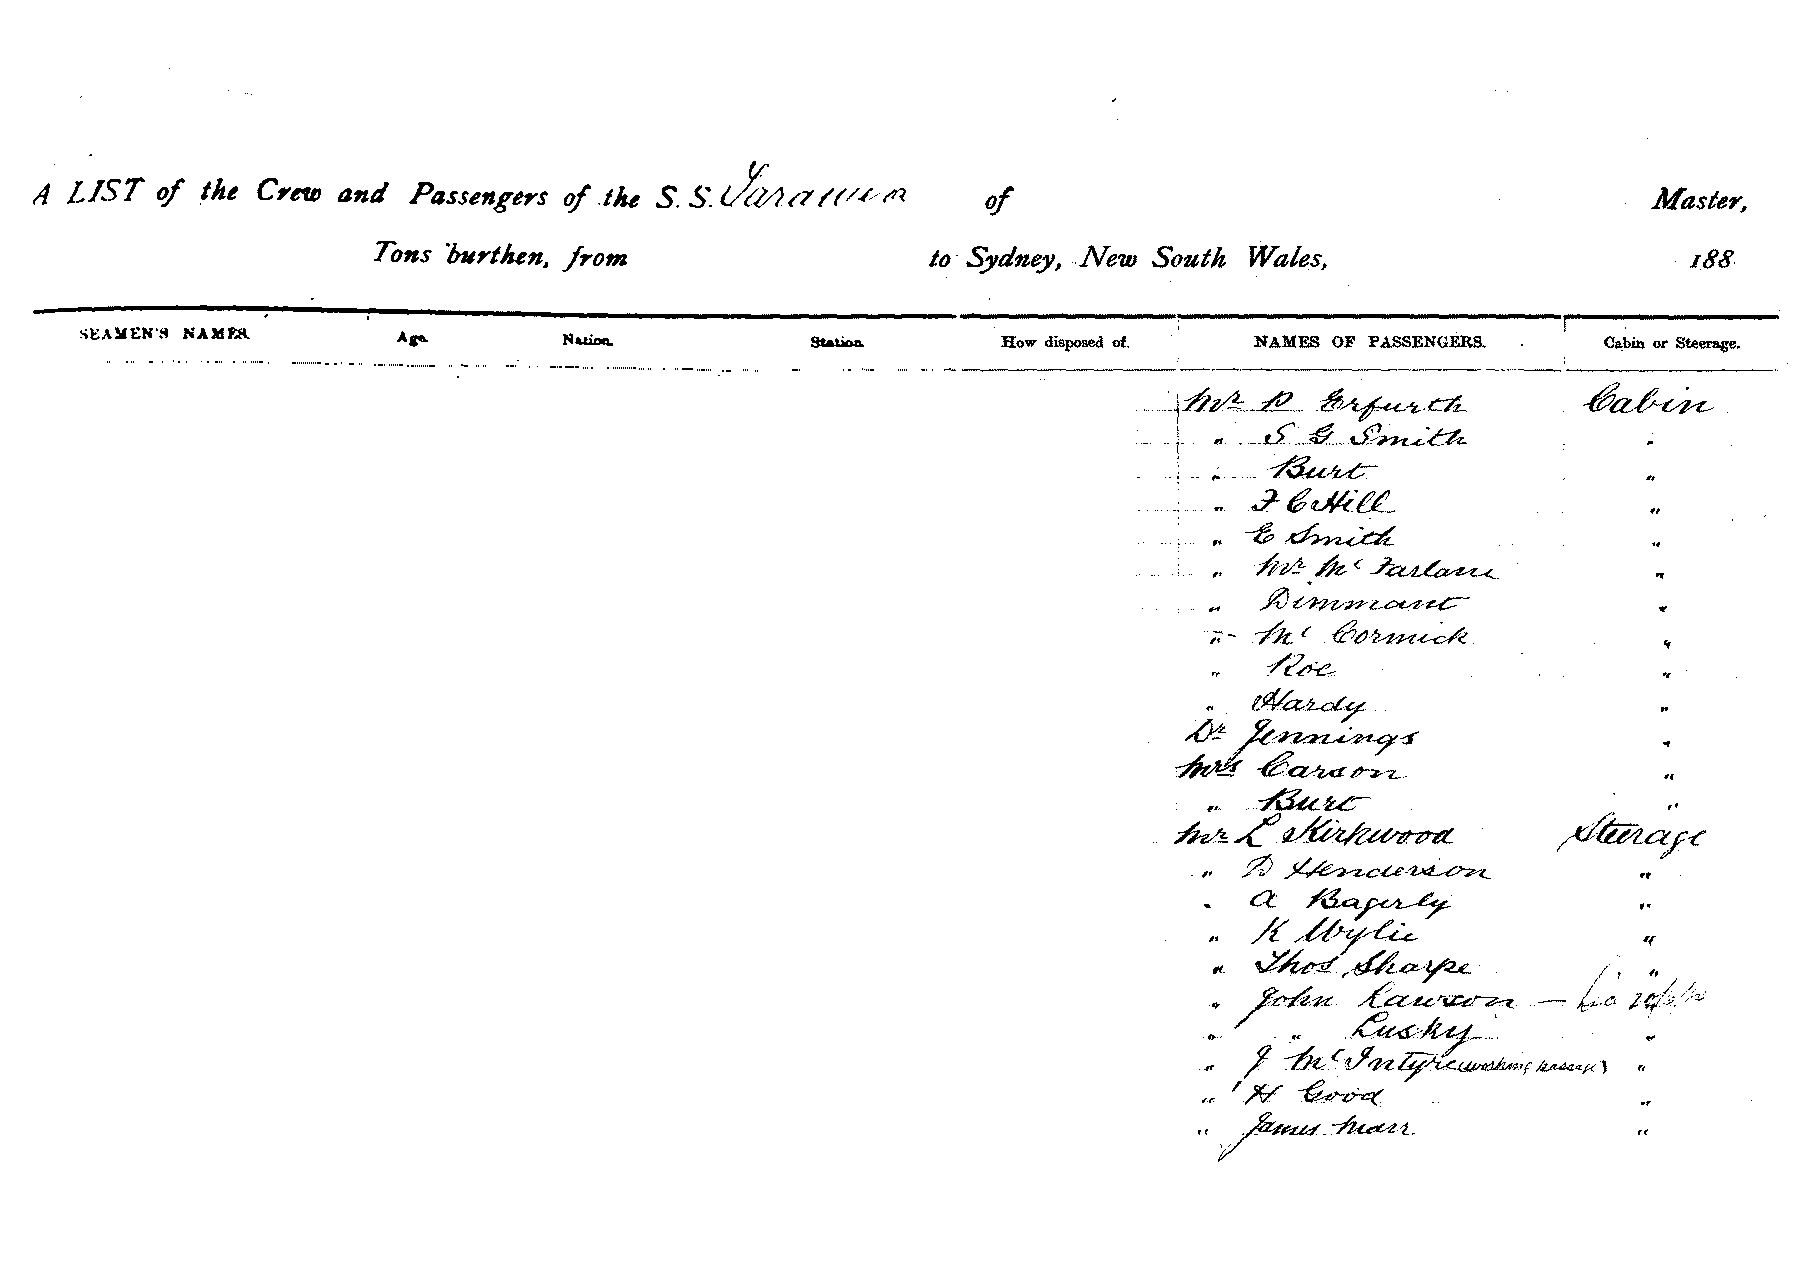 A LIST of the Crew and Passengers of the S. S. Tarawera of Master,
Tons burthen, from to Sydney, New South Wales, 188
SEAMEN'S NAMES. Age. Nation. Station. How disposed of. NAMES OF PASSENGERS. Cabin or Steerage.
Mr D Erfurth Cabin
" S G Smith "
" Burt "
" F C Hill "
" E Smith "
" Mr Mc Farlane "
" Dimmant "
" Mc Cormick "
" Roe "
" Hardy "
Dr Jennings "
Mrs Carson "
" Burt "
Mr L Kirkwood Steerage
" D Henderson "
" A Bagerly "
" K Wylie "
" Thos Sharpe "
" John Lawson —
" " Lusky "
" J McIntyre (working passage) "
" H Good "
" James Marr "